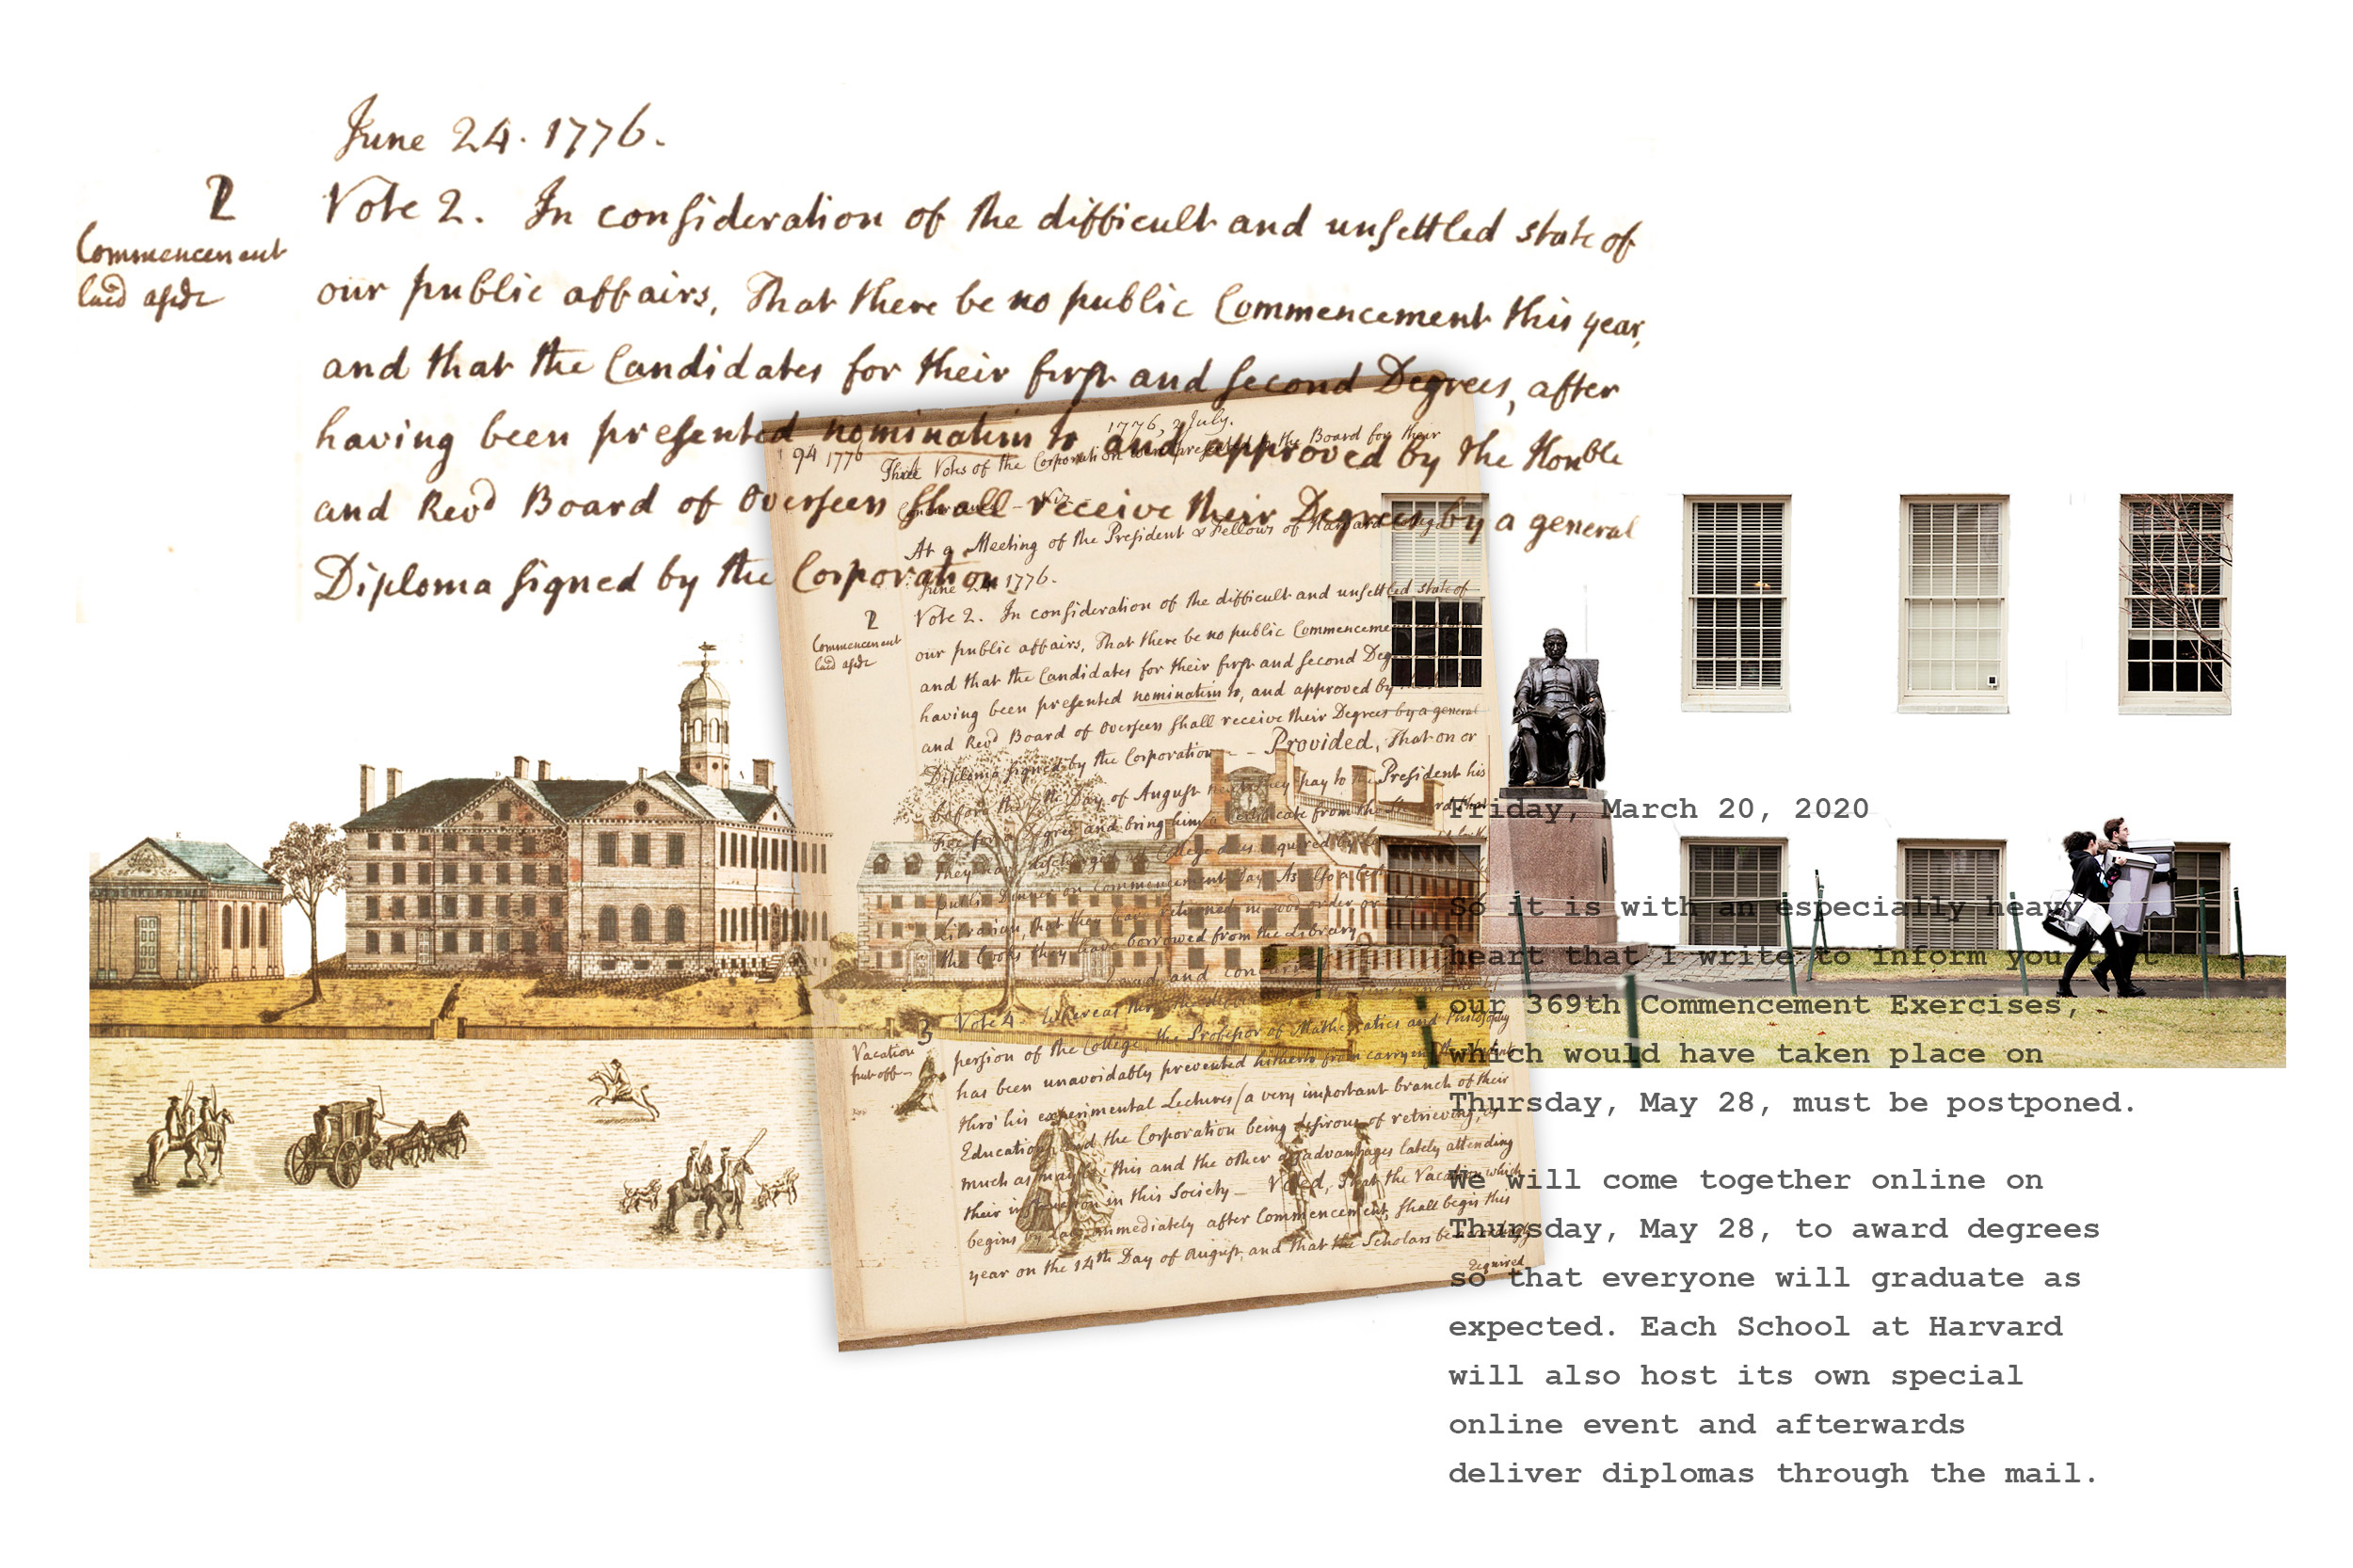 June 24. 1776.
2
Commencement
laid aside
Vote 2. In consideration of the difficult and unsettled state of
our public affairs, That there be no public Commencement this year,
and that the Candidates for their first and second Degrees, after
having been presented nomination to and approved by the Honble
and Revd Board of Overseers shall receive their Degrees by a general
Diploma signed by the Corporation
1776, 2 July.
94 1776
Three Votes of the Corporation were presented to the Board for their
Concurrence - Viz
At a Meeting of the President & Fellows of Harvard
June 24 1776.
2
Commencement
laid aside
Vote 2. In consideration of the difficult and unsettled state of
our public affairs, That there be no public Commencement
and that the Candidates for their first and second Degrees
having been presented nominatim to, and approved by
and Revd Board of Overseers shall receive their Degrees by a general
Diploma signed by the Corporation - - Provided, That on or
before the Day of August they pay to the President his
Fee for a Degree and bring him a Certificate from the
they have discharged College dues required by
public Dinner on Commencement Day. As also a
Librarian, that they have returned in good order
the books they have borrowed from the Library
3
Vacation
put off
Vote 4. Whereas the
persion of the College, the Professor of Mathematics and Philosophy
has been unavoidably prevented hitherto from carrying
thro' his experimental Lectures (a very important branch of their
Education) and the Corporation being desirous of retrieving, as
much as may be this and the other disadvantages lately attending
their instruction in this Society — Voted, That the Vacation which
begins by Law immediately after Commencement, shall begin this
year on the 14th Day of August, and that the Scholars be accordingly
required
Friday, March 20, 2020
So it is with an especially heavy
heart that I write to inform you that
our 369th Commencement Exercises,
which would have taken place on
Thursday, May 28, must be postponed.
We will come together online on
Thursday, May 28, to award degrees
so that everyone will graduate as
expected. Each School at Harvard
will also host its own special
online event and afterwards
deliver diplomas through the mail.